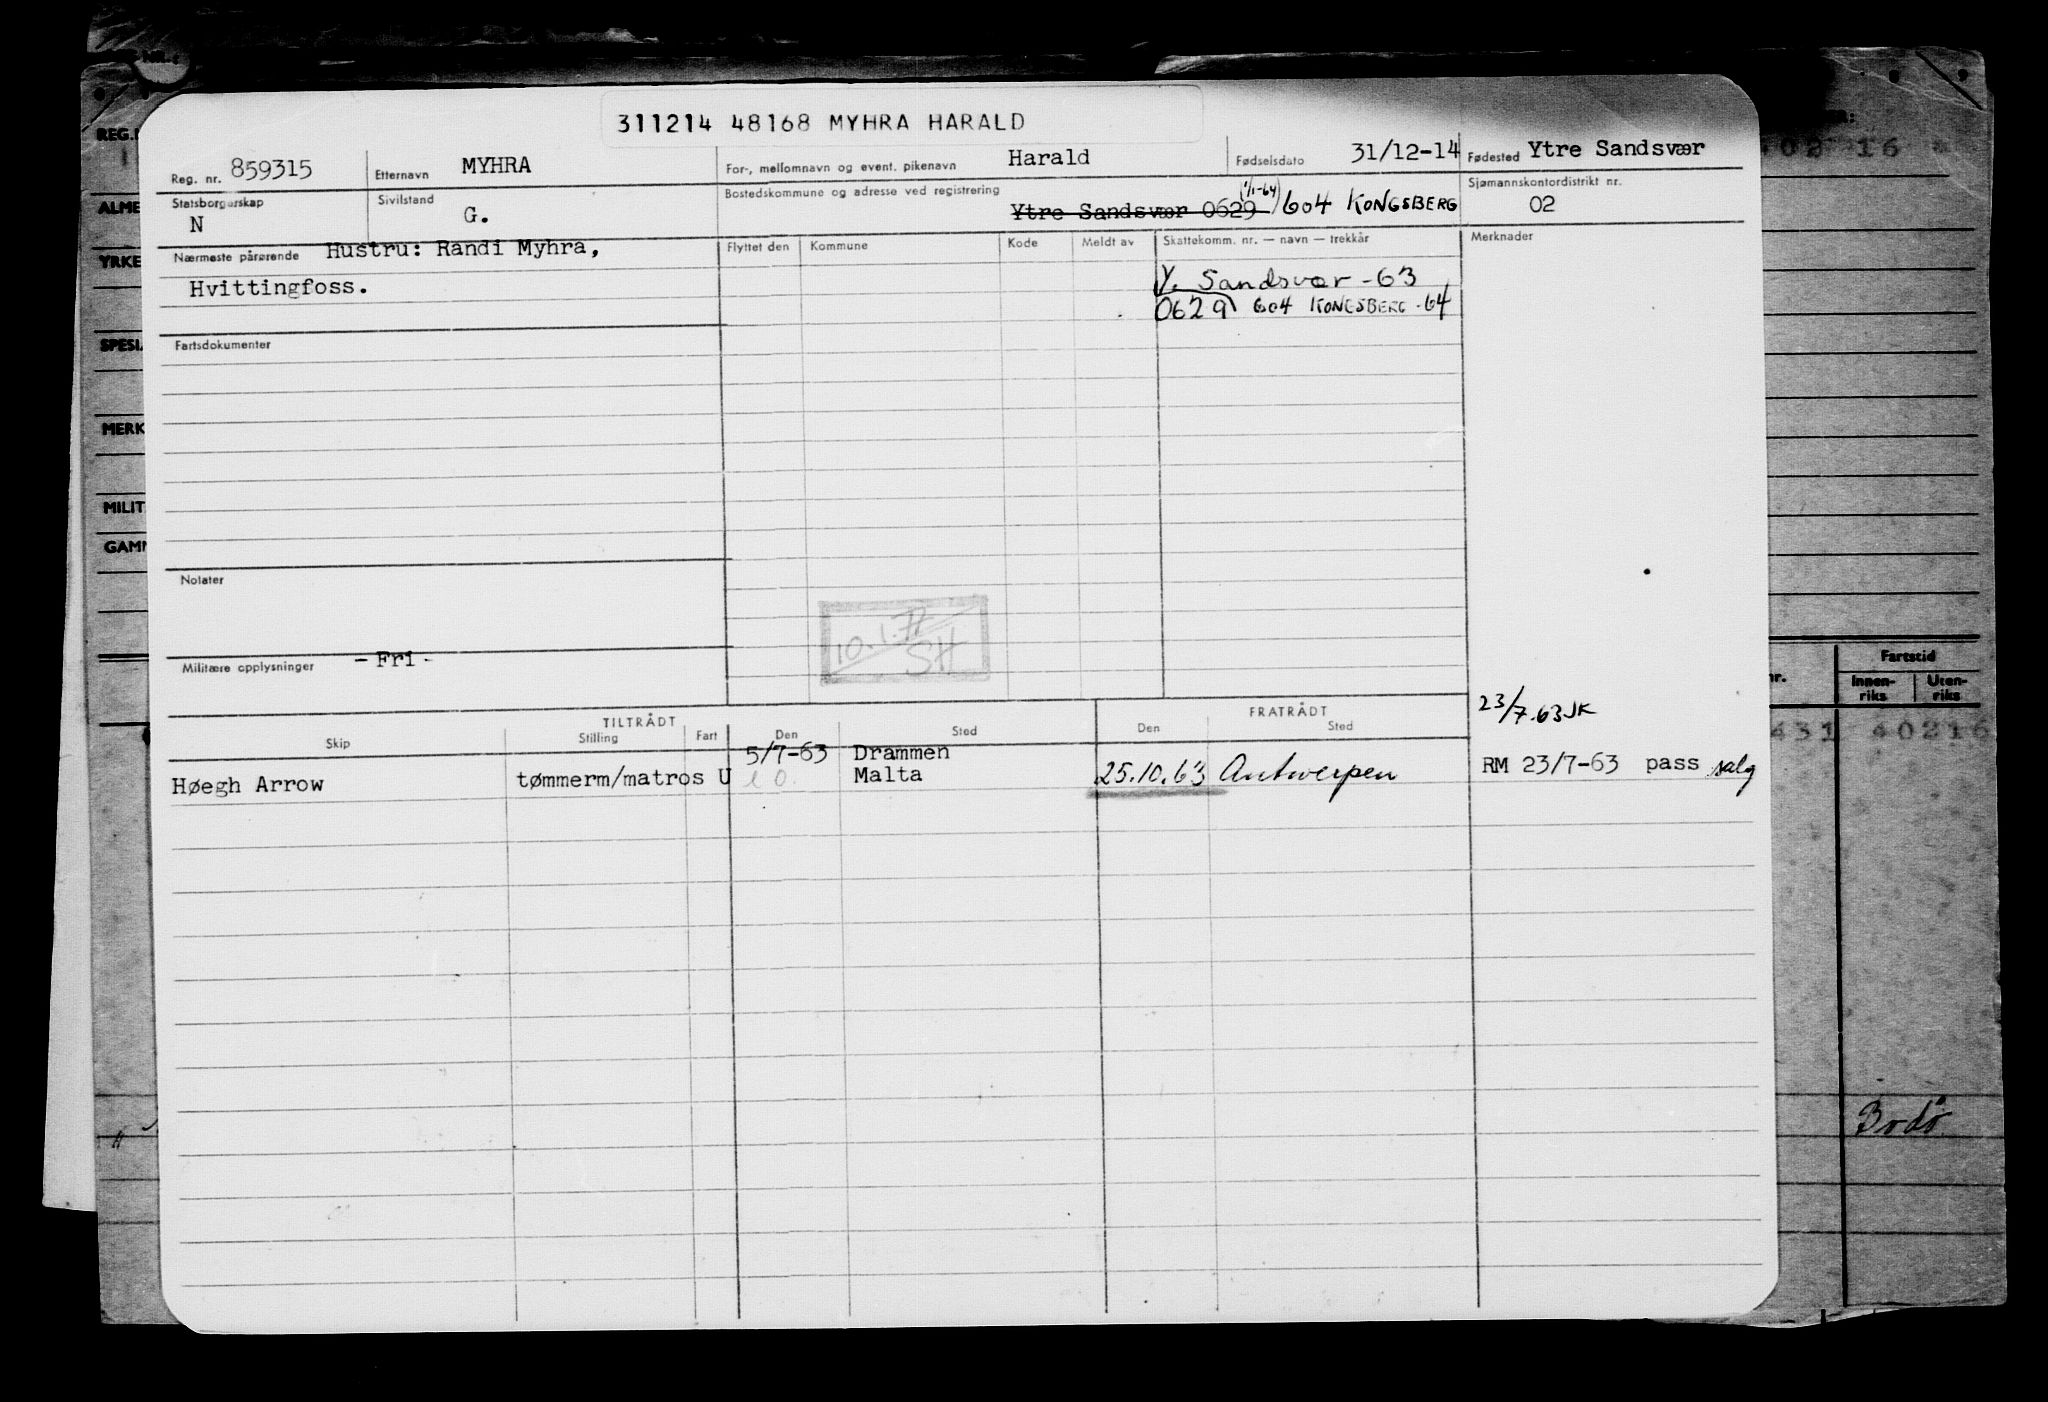 311214 48168 MYHRA HARALD
Reg. nr. 859315 Etternavn MYHRA For-, mellomnavn og event. pikenavn Harald Fødselsdato 31/12-14 Fødested Ytre Sandsvær
Statsborgerskap N Sivilstand G. Bostedskommune og adresse ved registrering Ytre Sandsvær 0629 (1/1-64) 604 KONGSBERG Sjømannskontordistrikt nr. 02
Nærmeste pårørende Hustru: Randi Myhra,
Hvittingfoss.
Flyttet den Kommune Kode Meldt av Skattekomm. nr. — navn — trekkår Merknader
Y. Sandsvær -63
0629) 604 KONGSBERG -64
Fartsdokumenter
Notater
10.1.77
SH
Militære opplysninger - Fri -
TILTRÅDT FRATRÅDT
23/7.63 JK
Skip Stilling Fart Den Sted Den Sted
5/7-63 Drammen
Høegh Arrow tømmerm/matros U Malta 25.10.63 Antwerpen RM 23/7-63 pass salg
REG.
ALME
YRKE
SPESIA
MERK
MILIT
GAMM
02 16
nr. Fartstid
Innen-riks Uten-riks
431 40216
Bodø